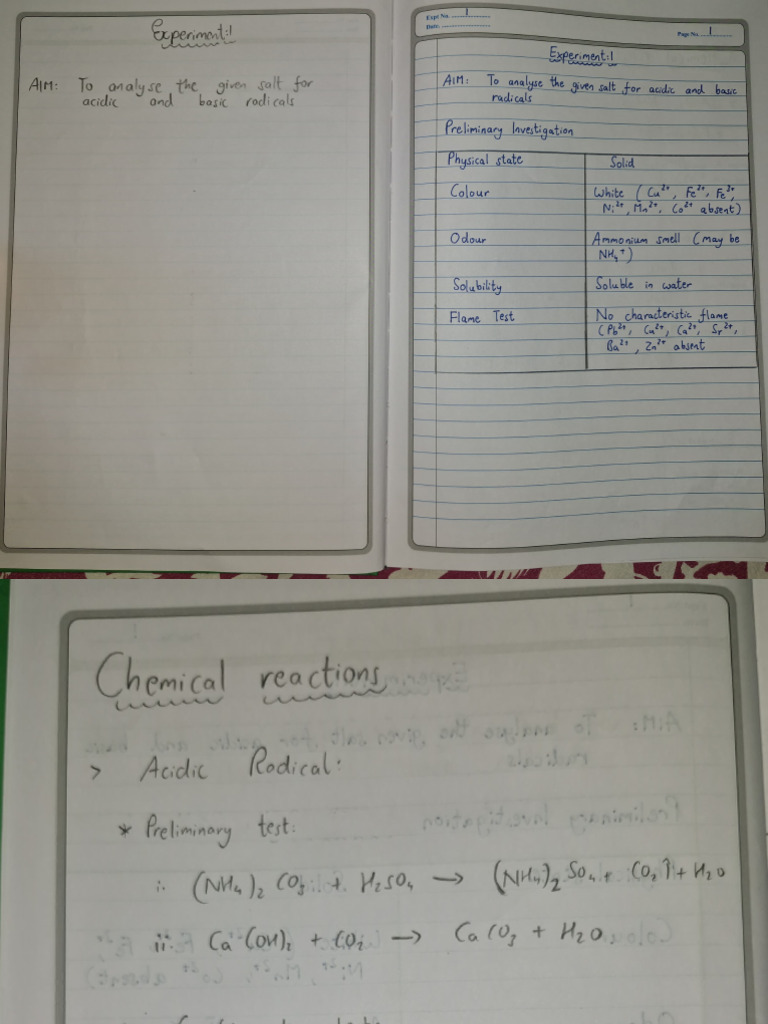 Experiment:1
AIM: To analyse the given salt for
acidic and basic radicals
Expt No. 1
Date:
Page No. 1
Experiment:1
AIM: To analyse the given salt for acidic and basic
radicals
Preliminary Investigation
Physical state Solid
Colour White (Cu²⁺, Fe²⁺, Fe³⁺,
Ni²⁺, Mn²⁺, Co²⁺ absent)
Odour Ammonium smell (may be
NH₄⁺)
Solubility Soluble in water
Flame Test No characteristic flame
(Pb²⁺, Cu²⁺, Ca²⁺, Sr²⁺,
Ba²⁺, Zn²⁺ absent
Chemical reactions
> Acidic Radical:
* Preliminary test:
i. (NH₄)₂ CO₃ + H₂SO₄ → (NH₄)₂ SO₄ + CO₂↑ + H₂O
ii. Ca(OH)₂ + CO₂ → CaCO₃ + H₂O